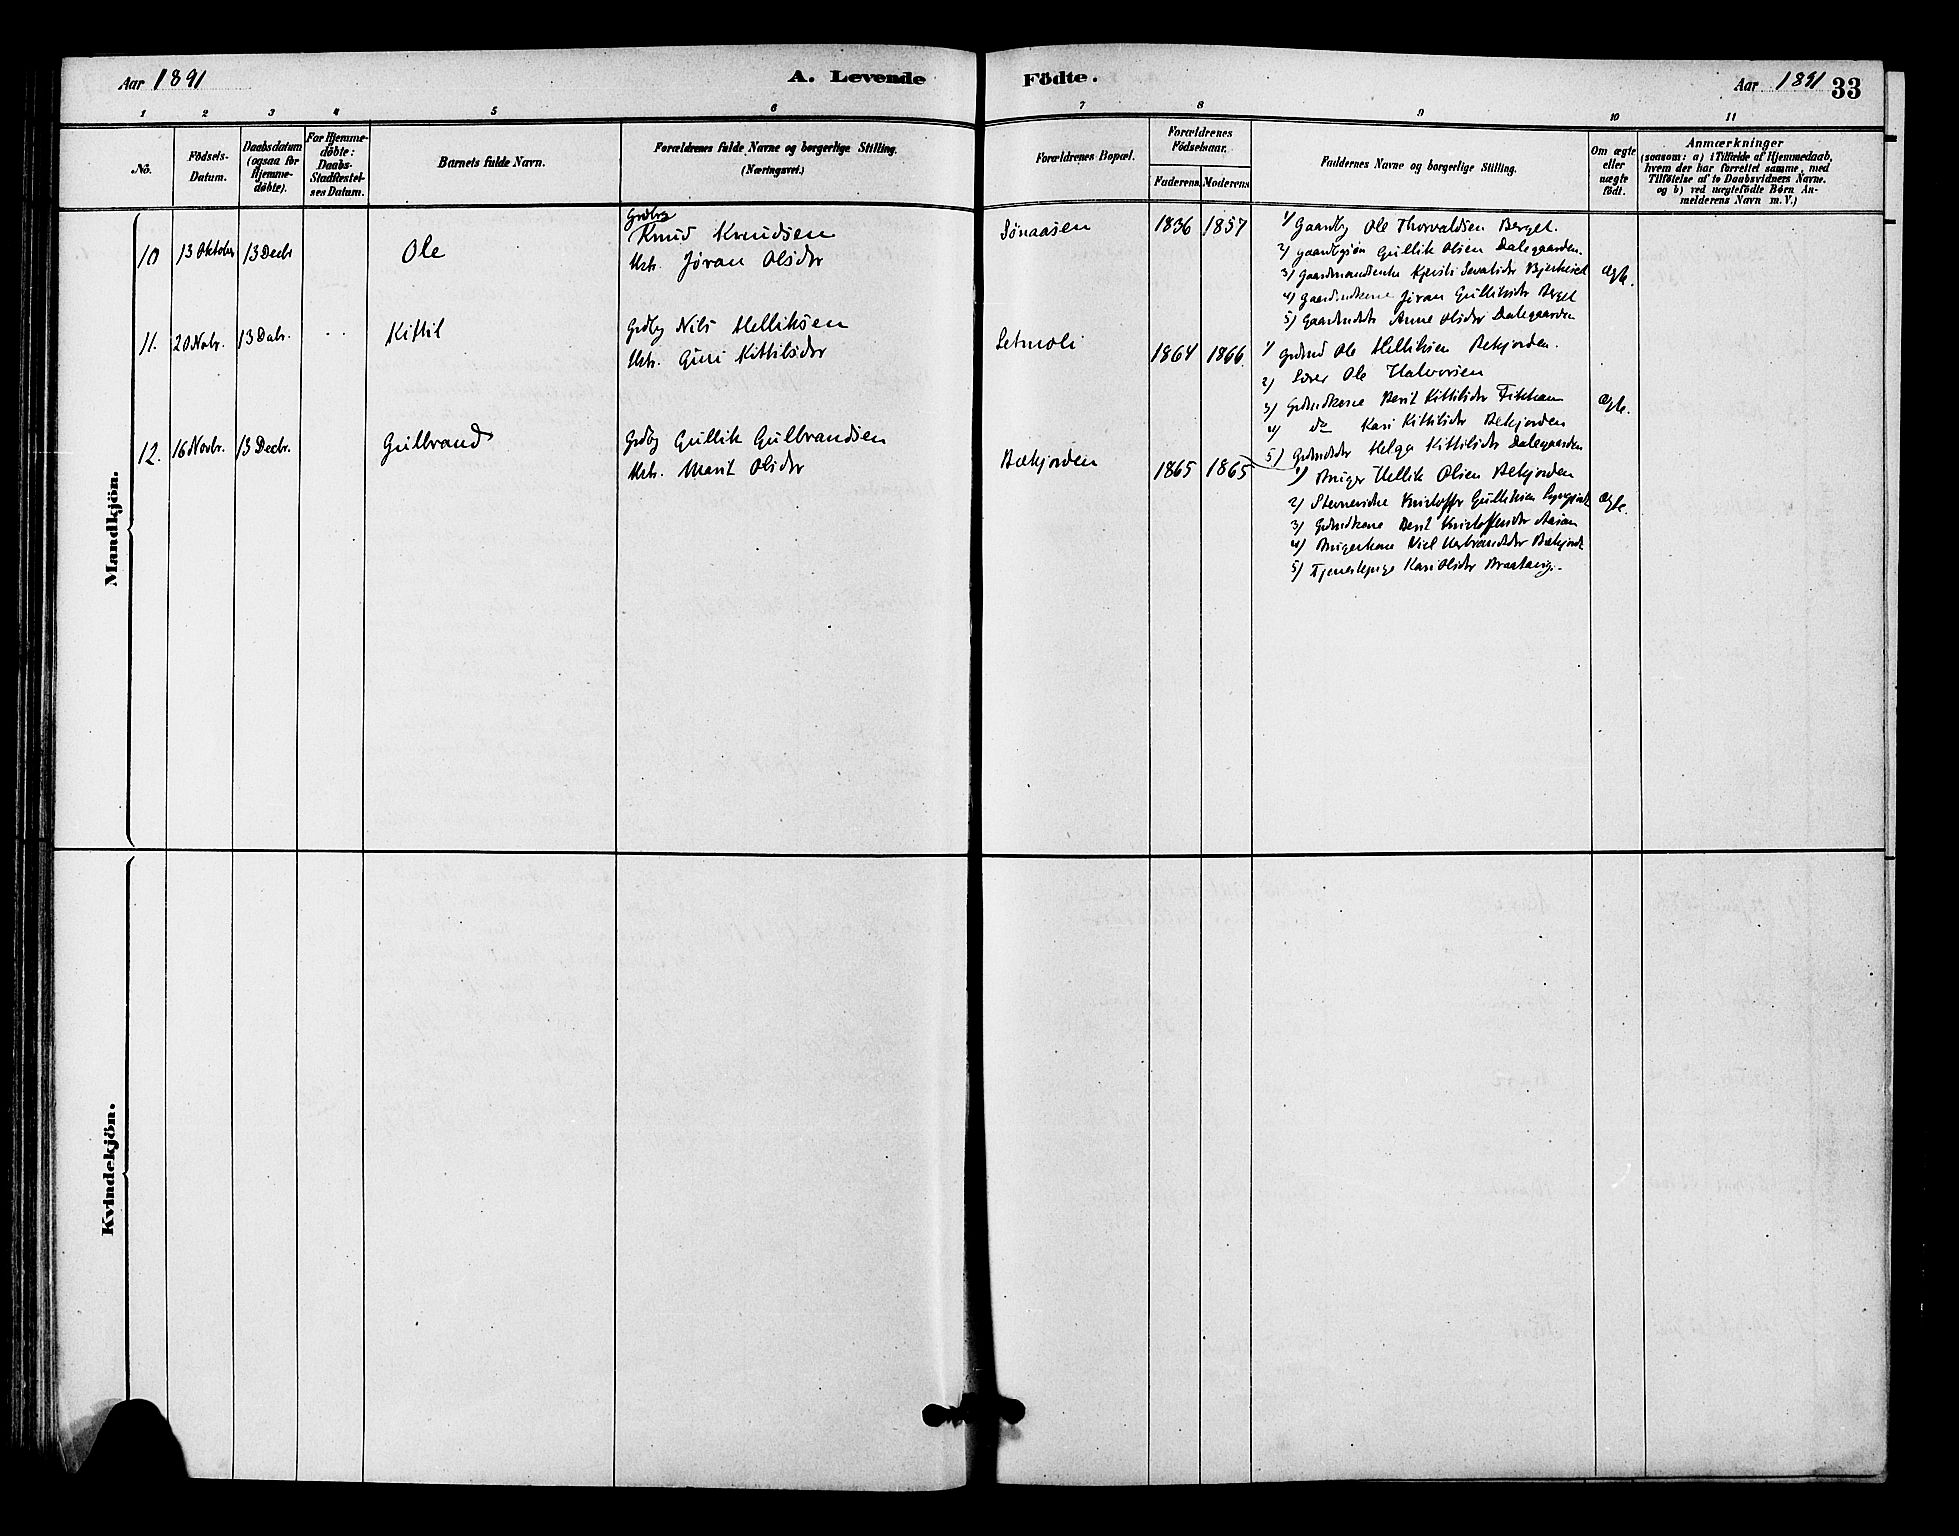 Aar 1891
A. Levende
Födte.
Aar 1891 33
1 2 3 4 5 6 7 8 9 10 11
No.
Födsels-
Datum.
Daabsdatum
(ogsaa for
Hjemme-
döbte).
For Hjemme-
döbte:
Daabs-
Stadfæstel-
ses Datum.
Barnets fulde Navn.
Forældrenes fulde Navne og borgerlige Stilling.
(Næringsvei.)
Forældrenes Bopæl.
Forældrenes
Födselsaar.
Faderens
Moderens
Faddernes Navne og borgerlige Stilling.
Om ægte
eller
uægte
födt.
Anmærkninger
(saasom: a) i Tilfælde af Hjemmedaab,
hvem der har forrettet samme, med
Tilföielse af to Daabsvidners Navne.
og b) ved uægtefödte Börn An-
melderens Navn m. V.)
Mandkjön.
10 13 Oktober 13 Decbr Ole
Grdbr
Knud Knudsen
Hstr. Jøran Olsdtr
Sønaasen 1836 1857
1) Gaardbr Ole Thorvaldsen Berget.
2) Gaardbrsøn Gullik Olsen Dalegaarden.
3) Gaardmandsenke Kjersti
4) Jøran Gulliksdtr Berget
5) Anne Olsdtr Dalegaarden
Ægte.
11. 20 Novbr. 13 Debr. - - Kittil
Grdbr Nils Helliksen
Hstr. Guri Kittilsdtr
Setmoli 1864 1866
1) Grdmd Ole Helliksen Bekjorden.
2) Lærer Ole Halvorsen
3) Grdmdkone Berit Kittilsdtr
4) do Kari Kittilsdtr Bekjorden
5) Helga Kittilsdtr Dalegaarden
Ægte.
12. 16 Novbr. 13 Decbr. Gulbrand
Grdbr Gullik Gulbrandsen
Hstr. Marit Olsdtr
Bækjorden 1865 1865
1) Bruger Hellik Olsen Bekjorden
2) Gulliksen
3) Grdmdkone Berit Kristoffersdtr Aasan
4) Brugerkone
5) Tjenestepige Kari Olsdtr
Ægte.
Kvindekjön.